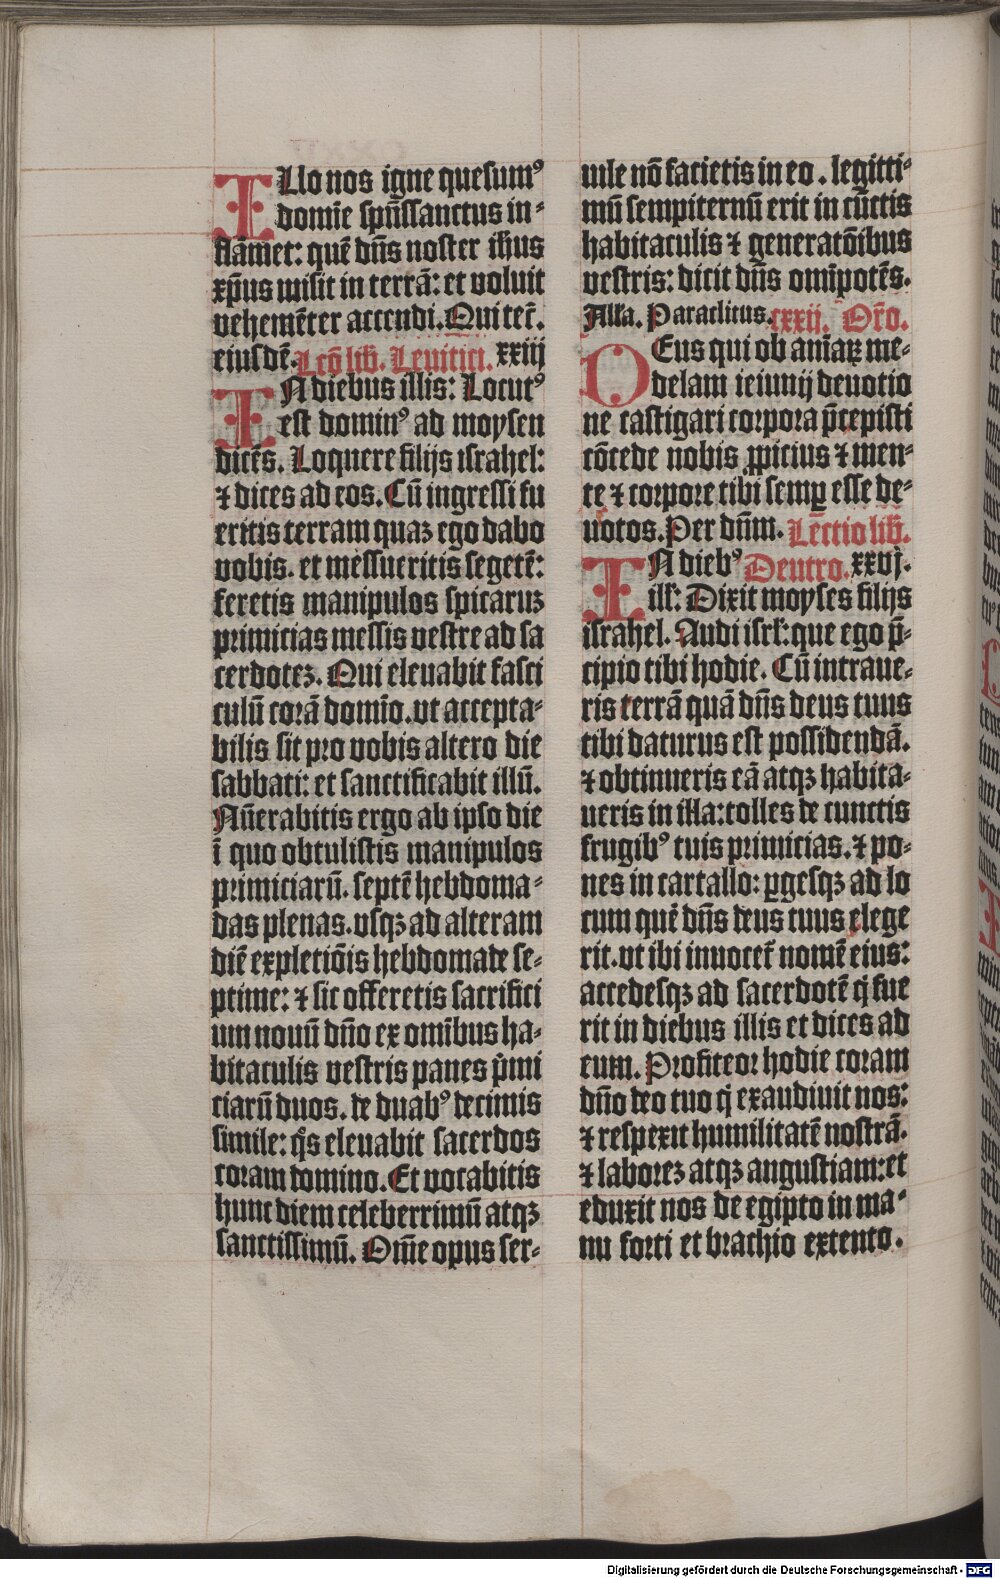 ILlo nos igne quesumꝰ
domīe spūssanctus in-
flāmet: quē dn̄s noster ihūs
xp̄us misit in terrā: et voluit
vehemēter accendi. Qui tec̄.
eiusdē. Lcō lib̄. Levitici. xxiij
IN diebus illis: Locutꝰ
est dominꝰ ad moysen
dicēs. Loquere filijs israhel:
⁊ dices ad eos. Cū ingressi fu
eritis terram quaꝫ ego dabo
vobis. et messueritis segetē:
feretis manipulos spicaruꝫ
primicias messis vestre ad sa
cerdoteꝫ. Qui eleuabit fasci
culū corā domīo. ut accepta-
bilis sit pro vobis altero die
sabbati: et sanctificabit illū.
Nūerabitis ergo ab ipso die
ī quo obtulistis manipulos
primiciarū. septē hebdoma-
das plenas. vsqꝫ ad alteram
diē expletiōis hebdomade se-
ptime: ⁊ sic offeretis sacrifici
um nouū dn̄o ex omībus ha-
bitaculis vestris panes p̄mi
ciarū duos. de duabꝰ decimis
simile: q̄s eleuabit sacerdos
coram domino. Et vocabitis
hunc diem celeberrimū atqꝫ
sanctissimū. Om̄e opus ser-
uile nō facietis in eo. legitti-
mū sempiternū erit in cūctis
habitaculis ⁊ generatōibus
vestris: dicit dn̄s omīpotēs.
Alla. Paraclitus. cxxij. Or̄o.
DEus qui ob aīaꝝ me-
delam ieiunij deuotio
ne castigari corpora p̄cepisti
cōcede nobis ꝓpicius ⁊ men-
te ⁊ corpore tibi semꝑ esse de-
uotos. Per dn̄m. Lec̄tio lib̄.
IN diebꝰ Deutro. xxvj.
ill̄: Dixit moyses filijs
israhel. Audi isrl̄: que ego p̄-
cipio tibi hodie. Cū intraue-
ris terrā quā dn̄s deus tuus
tibi daturus est possidendā.
⁊ obtinueris eā atqꝫ habita-
ueris in illa: tolles de cunctis
frugibꝰ tuis primicias. ⁊ po-
nes in cartallo: ꝑgesqꝫ ad lo
cum quē dn̄s deus tuus elege
rit. vt ibi inuocet̄ nomē eius:
accedesqꝫ ad sacerdotē q̄ fue
rit in diebus illis et dices ad
eum. Profiteor hodie coram
dn̄o deo tuo q̄ exaudiuit nos:
⁊ respexit humilitatē nostrā.
⁊ laboreꝫ atqꝫ angustiam: et
eduxit nos de egipto in ma-
nu forti et brachio extento.
Digitalisierung gefördert durch die Deutsche Forschungsgemeinschaft - DFG